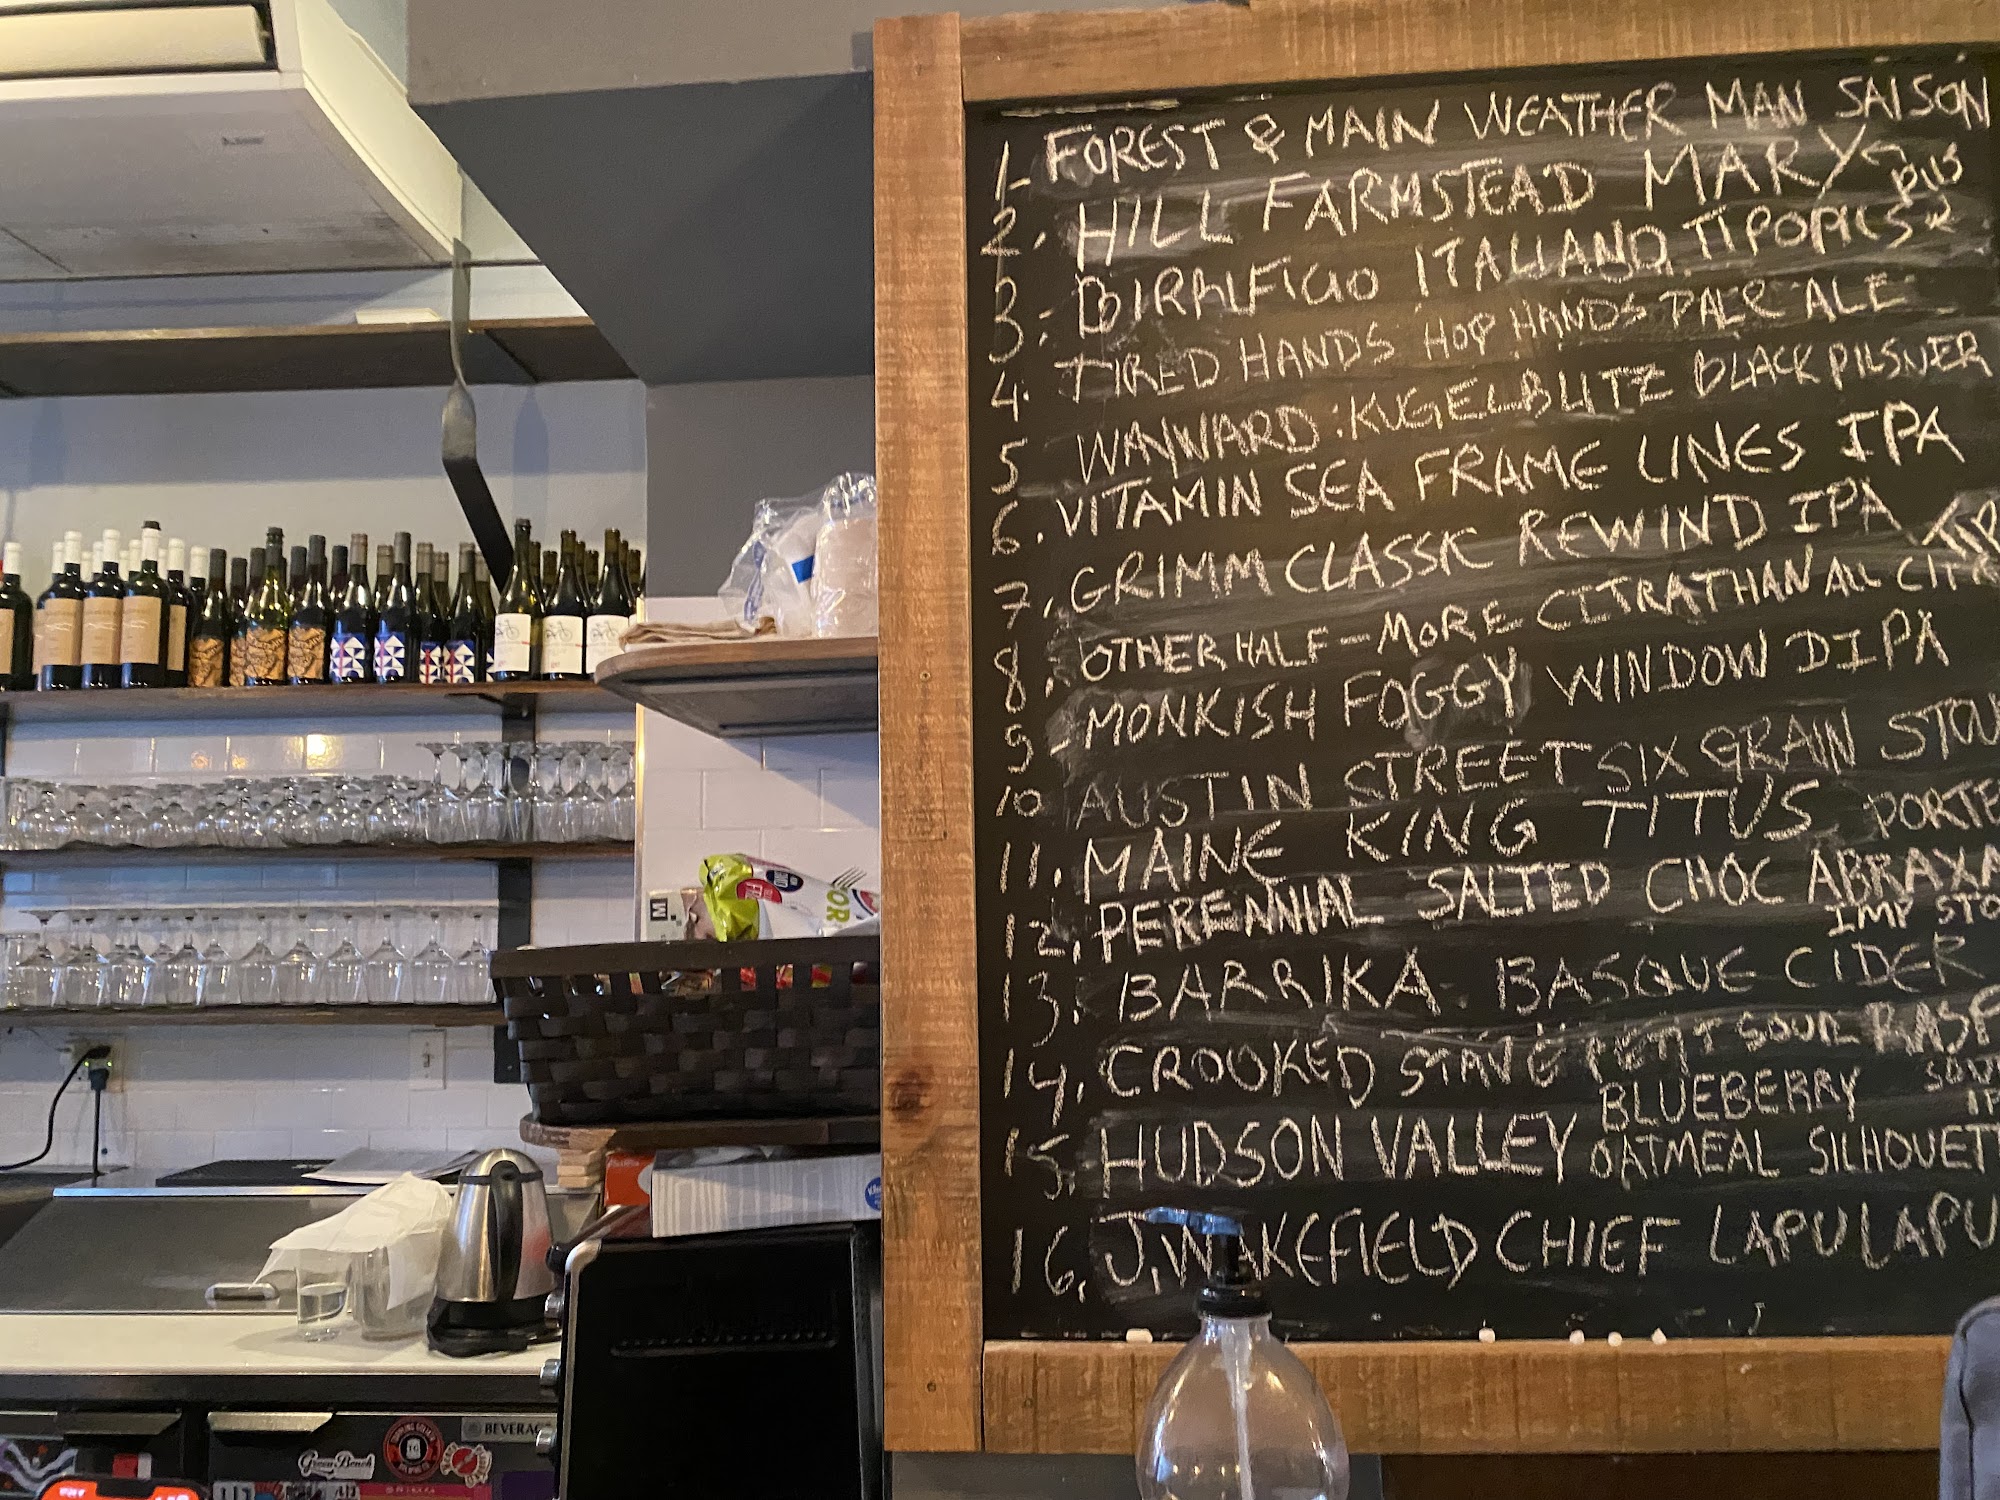 1- FOREST & MAIN WEATHER MAN SAISON
2. HILL FARMSTEAD MARY PILS
3. BIRRIFICIO ITALIANO TIPOPILS
4. TIRED HANDS HOP HANDS PALE ALE
5 WAYWARD: KUGELBLITZ BLACK PILSNER
6. VITAMIN SEA FRAME LINES IPA
7. GRIMM CLASSIC REWIND IPA
8. OTHER HALF - MORE CITRA THAN ALL CITRA
9 - MONKISH FOGGY WINDOW DIPA
10 AUSTIN STREET SIX GRAIN STOU
11. MAINE KING TITUS PORTE
12. PERENNIAL SALTED CHOC ABRAXA
IMP STO
13. BARRIKA BASQUE CIDER
14. CROOKED STAVE PETIT SOUR RASP
BLUEBERRY SOUR
IP
15. HUDSON VALLEY OATMEAL SILHOUETT
16. J. WAKEFIELD CHIEF LAPU LAPU
M
Green Bench
TG
BEVERAG